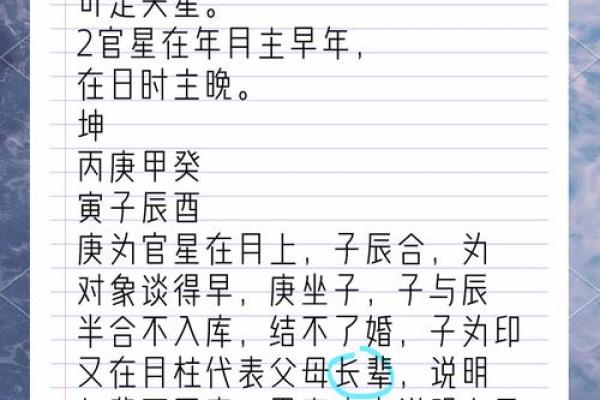 可定夫星。
2官星在年月主早年，
在日时主晚。
坤
丙庚甲癸
寅子辰酉
庚为官星在月上，子辰合，为
对象谈得早，庚坐子，子与辰
半合不入库，结不了婚，子为印
又在月柱代表父母长辈，说明